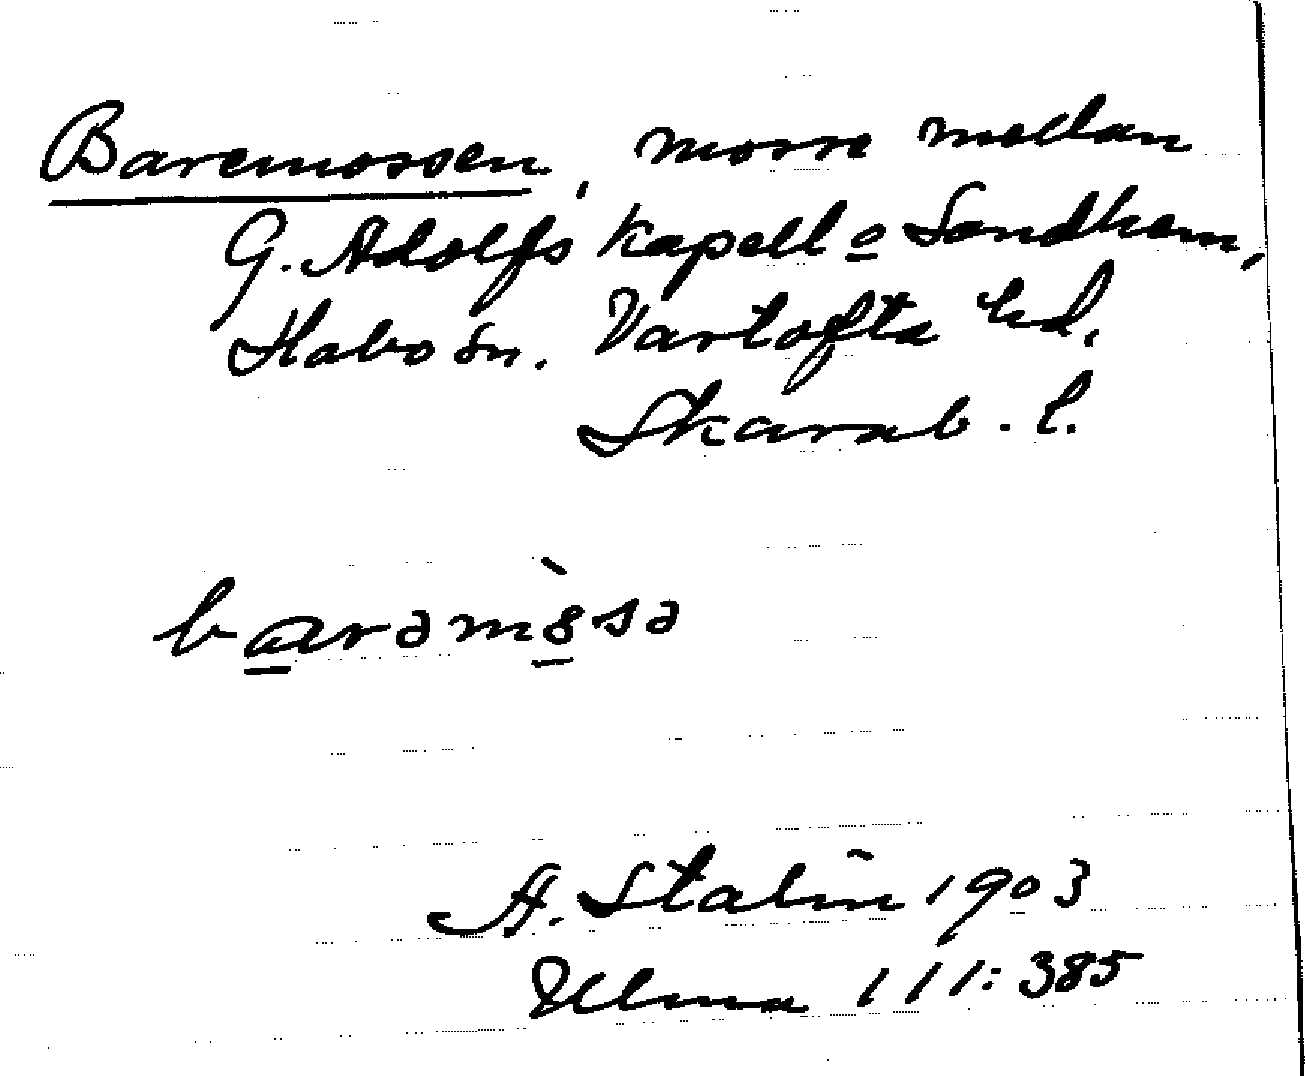 Baremossen, mosse mellan
G. Adolfs kapell o Sandhem,
Habo sn. Vartofta hd.
Skarab. l.
barəmòsə
A. Stalin 1903
Ulma 111:385